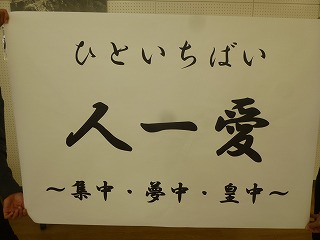 ひといちばい
人一愛
～集中・夢中・皇中～